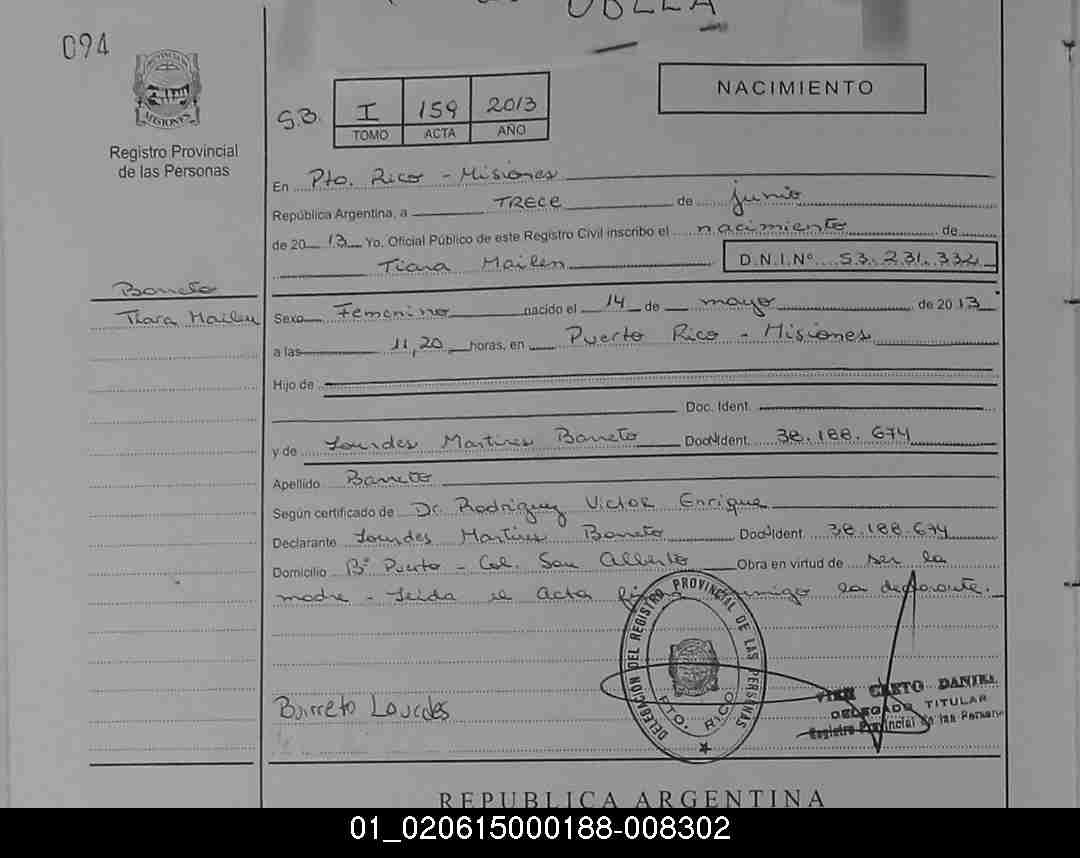 094
PROVINCIA DE
MISIONES
Registro Provincial
de las Personas
S.B. I 159 2013
TOMO ACTA AÑO
NACIMIENTO
En Pto. Rico - Misiones
República Argentina, a TRECE de junio
de 2013 Yo, Oficial Público de este Registro Civil inscribo el nacimiento de
Tiara Mailen D.N.I.Nº 53.231.334
Barreto
Tiara Mailen
Sexo Femenino nacido el 14 de mayo de 2013
a las 11,20 horas, en Puerto Rico - Misiones
Hijo de
Doc. Ident.
y de Lourdes Martires Barreto Doc. Ident. 38.188.674
Apellido Barreto
Según certificado de Dr. Rodriguez Victor Enrique
Declarante Lourdes Martires Barreto Doc. Ident 38.188.674
Domicilio Bº Puerto - Col. San Alberto Obra en virtud de ser la
madre - Leida el Acta la declarante.
DELEGACION DEL REGISTRO PROVINCIAL DE LAS PERSONAS
PTO. RICO
Barreto Lourdes
DELEGADO TITULAR
Registro Provincial de las Personas
REPUBLICA ARGENTINA
01_020615000188-008302